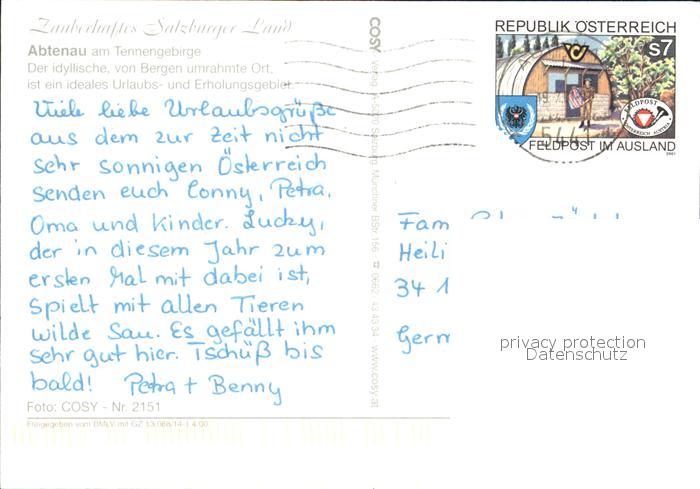 Zauberhaftes Salzburger Land
Abtenau am Tennengebirge
Der idyllische, von Bergen umrahmte Ort,
ist ein ideales Urlaubs- und Erholungsgebiet.
Viele liebe Urlaubsgrüße
aus dem zur Zeit nicht
sehr sonnigen Österreich
senden euch Conny, Petra,
Oma und Kinder. Lucky,
der in diesem Jahr zum
ersten Mal mit dabei ist,
spielt mit allen Tieren
wilde Sau. Es gefällt ihm
sehr gut hier. Tschüß bis
bald! Petra + Benny
Foto: COSY - Nr. 2151
Freigegeben vom BMLV mit GZ
COSY
Verlag Salzburg, Münchner BStr. 156 ☎ 0662 43 43 34 www.cosy.at
REPUBLIK ÖSTERREICH
s7
FELDPOST
544
FELDPOST IM AUSLAND
2001
Fam
Heili
34 1
Germ
privacy protection
Datenschutz